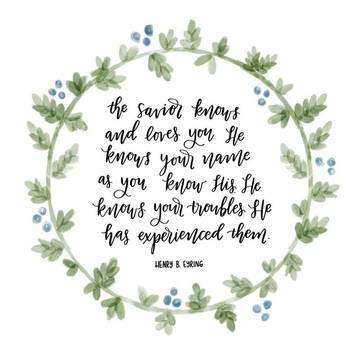 the savior knows
and loves you. He
knows your name
as you know His. He
knows your troubles. He
has experienced them.
HENRY B. EYRING